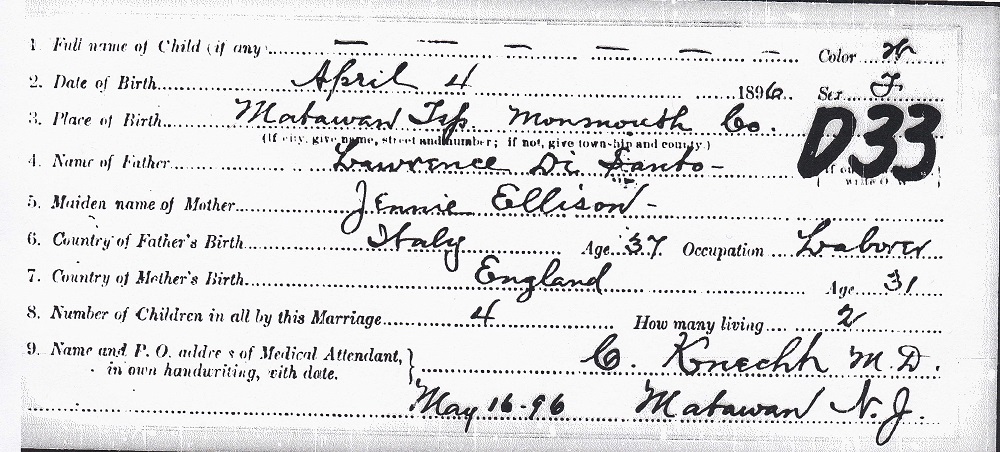 1 Full name of Child (if any) — — — — — — Color W
2. Date of Birth April 4 1896 Sex F.
3. Place of Birth Matawan Tsp. Monmouth Co. D33
(If city, give name, street and number; if not, give township and county.)
4. Name of Father Lawrence Di Santo -
5. Maiden name of Mother Jennie Ellison -
6. Country of Father's Birth Italy Age 37 Occupation Laborer
7. Country of Mother's Birth England Age 31
8. Number of Children in all by this Marriage 4 How many living 2
9. Name and P. O. address of Medical Attendant, C. Knechh M.D.
in own handwriting, with date.
May 16-96 Matawan N.J.